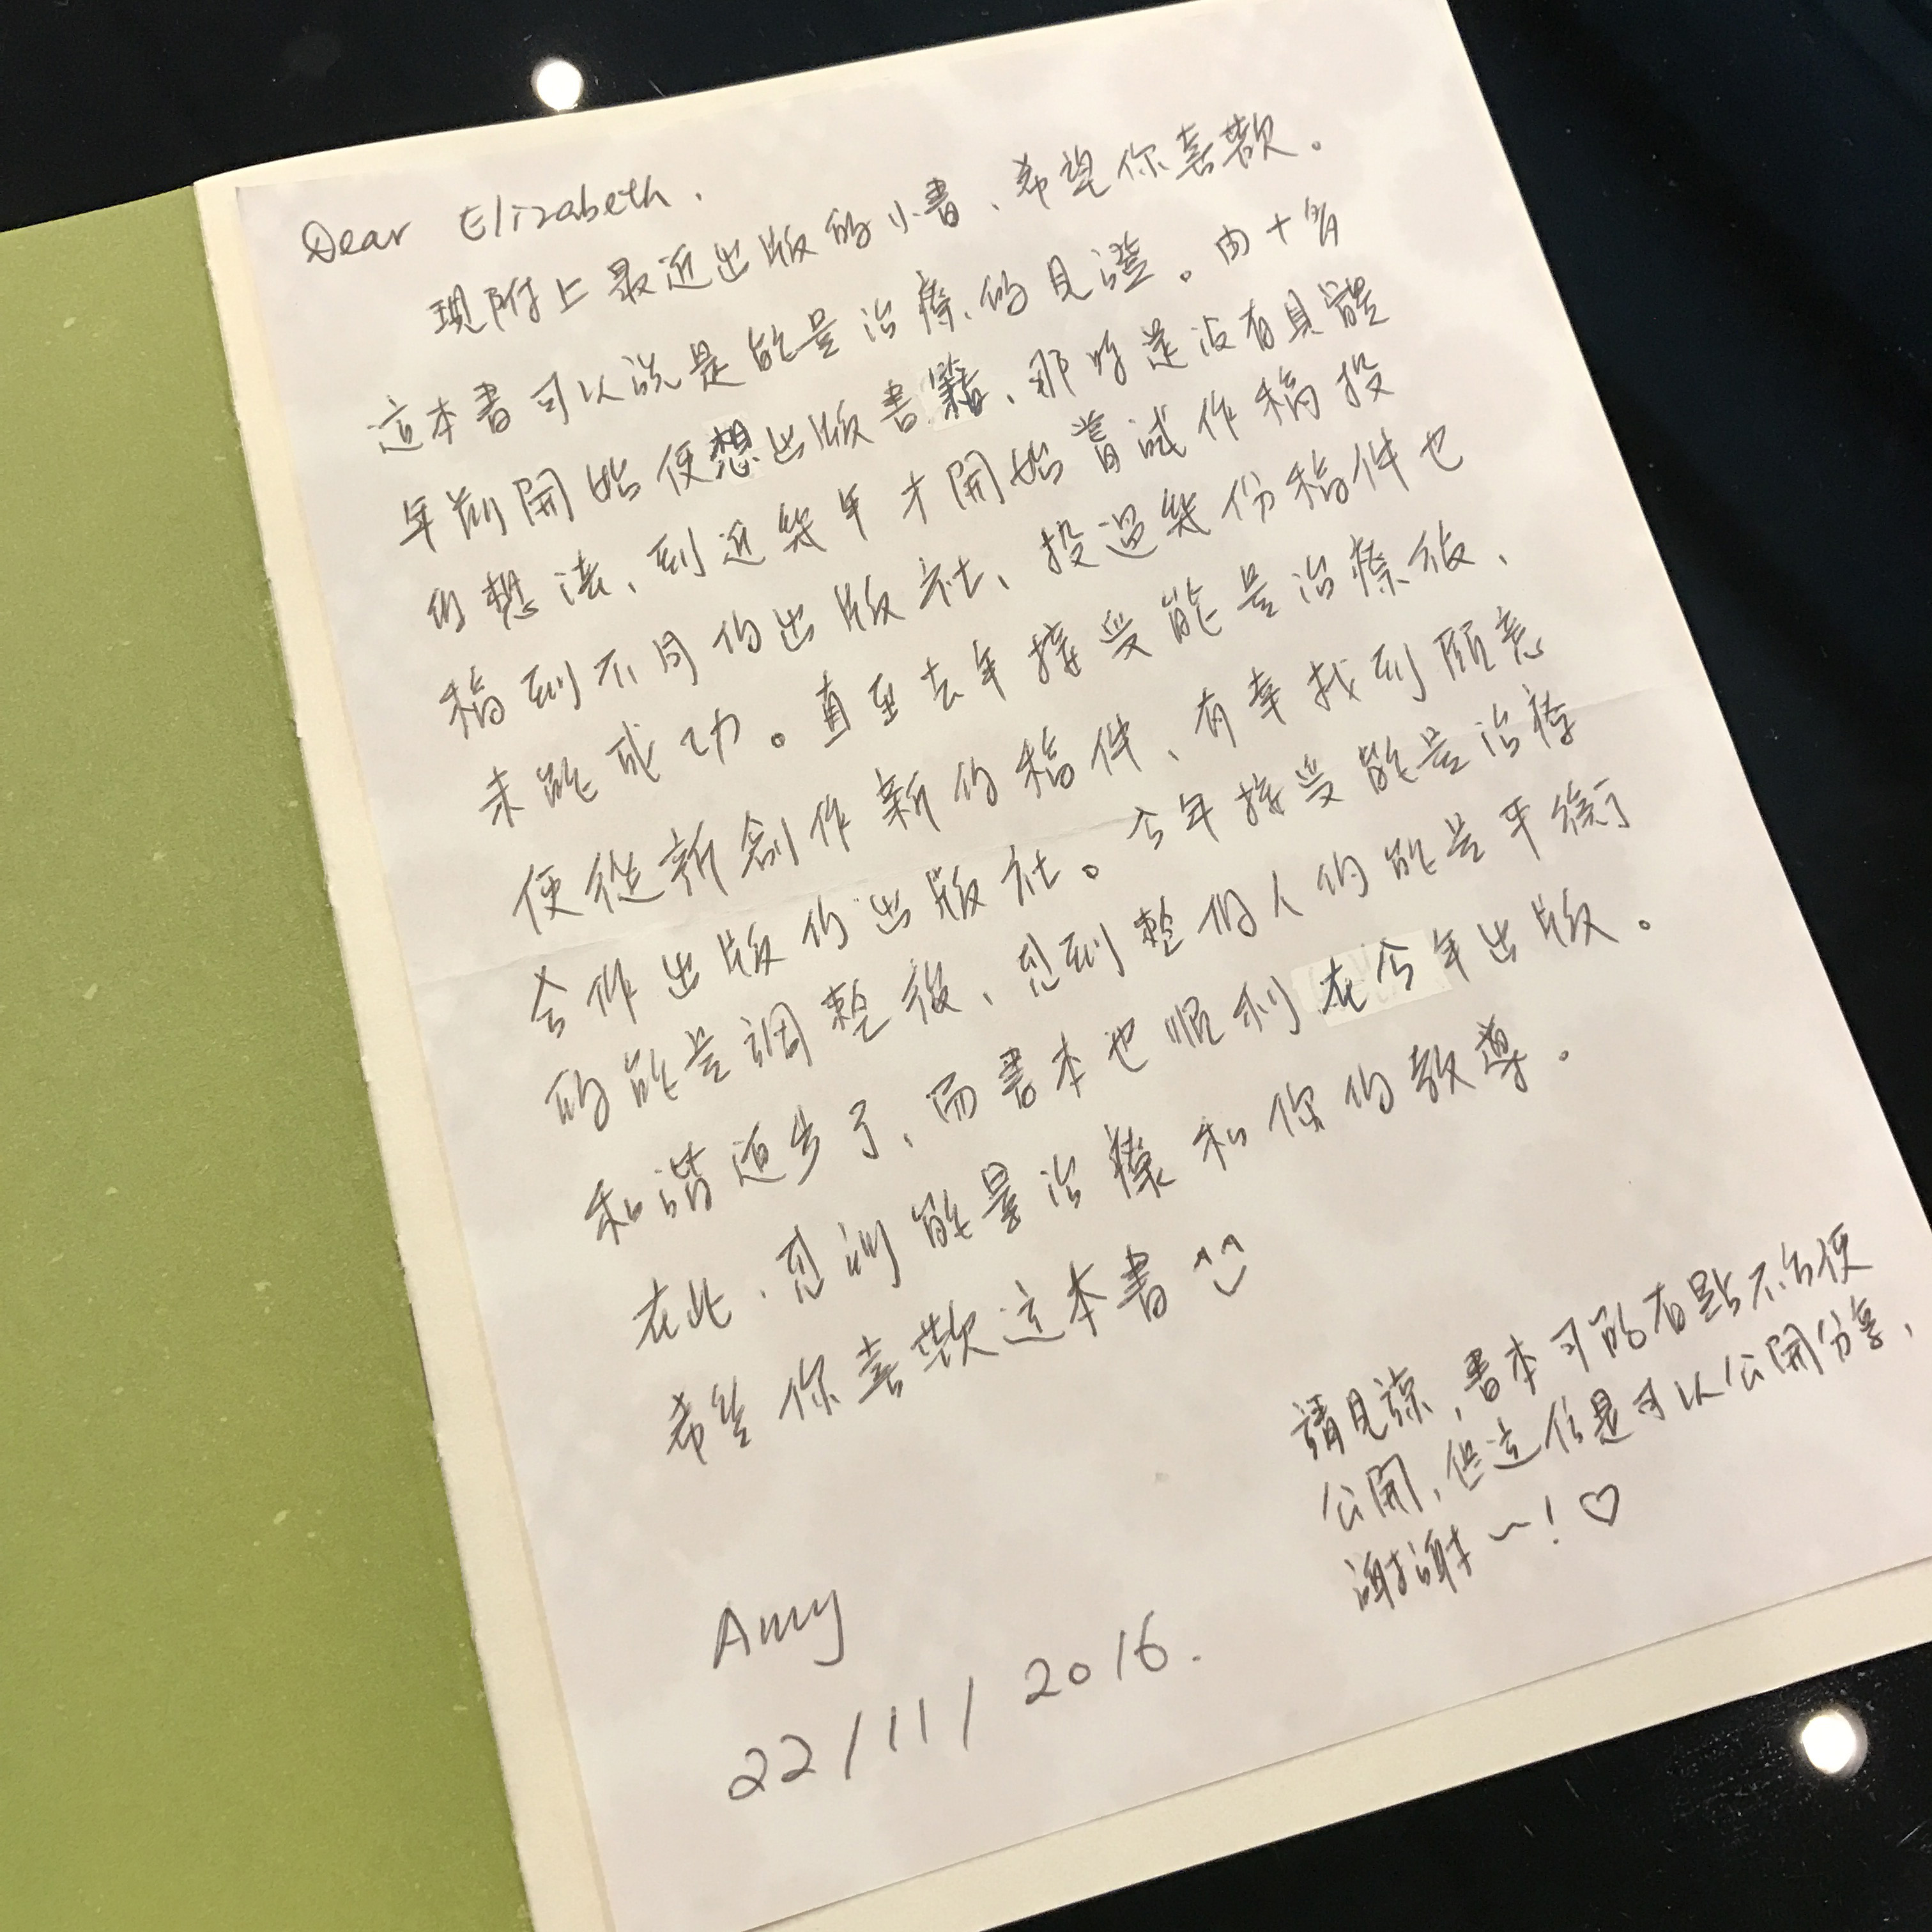 Dear Elizabeth,
現附上最近出版的小書、希望你喜歡。
這本書可以說是能量治療的見證。由十多
年前開始便想出版書籍、那時是沒有具體
的想法、到近幾年才開始嘗試作稿投
稿到不同的出版社、投過幾份稿件也
未能成功。直至去年接受能量治療後、
便從新創作新的稿件、有幸找到願意
合作出版的出版社。今年接受能量治療
的能量調整後、感到整個人的能量平衡
和諧進步了、而書本也順利在今年出版。
在此、感謝能量治療和你的教導。
希望你喜歡這本書 ^^
請見諒,書本可能有點不方便
公開,但這信是可以公開分享、
謝謝~!♡
Amy
22/11/2016.